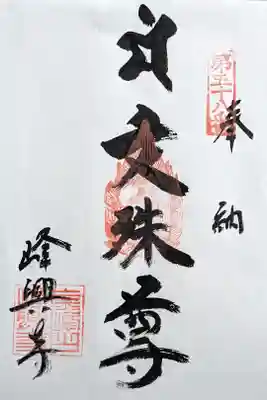 奉納
第五十八番
文殊尊
峰興寺